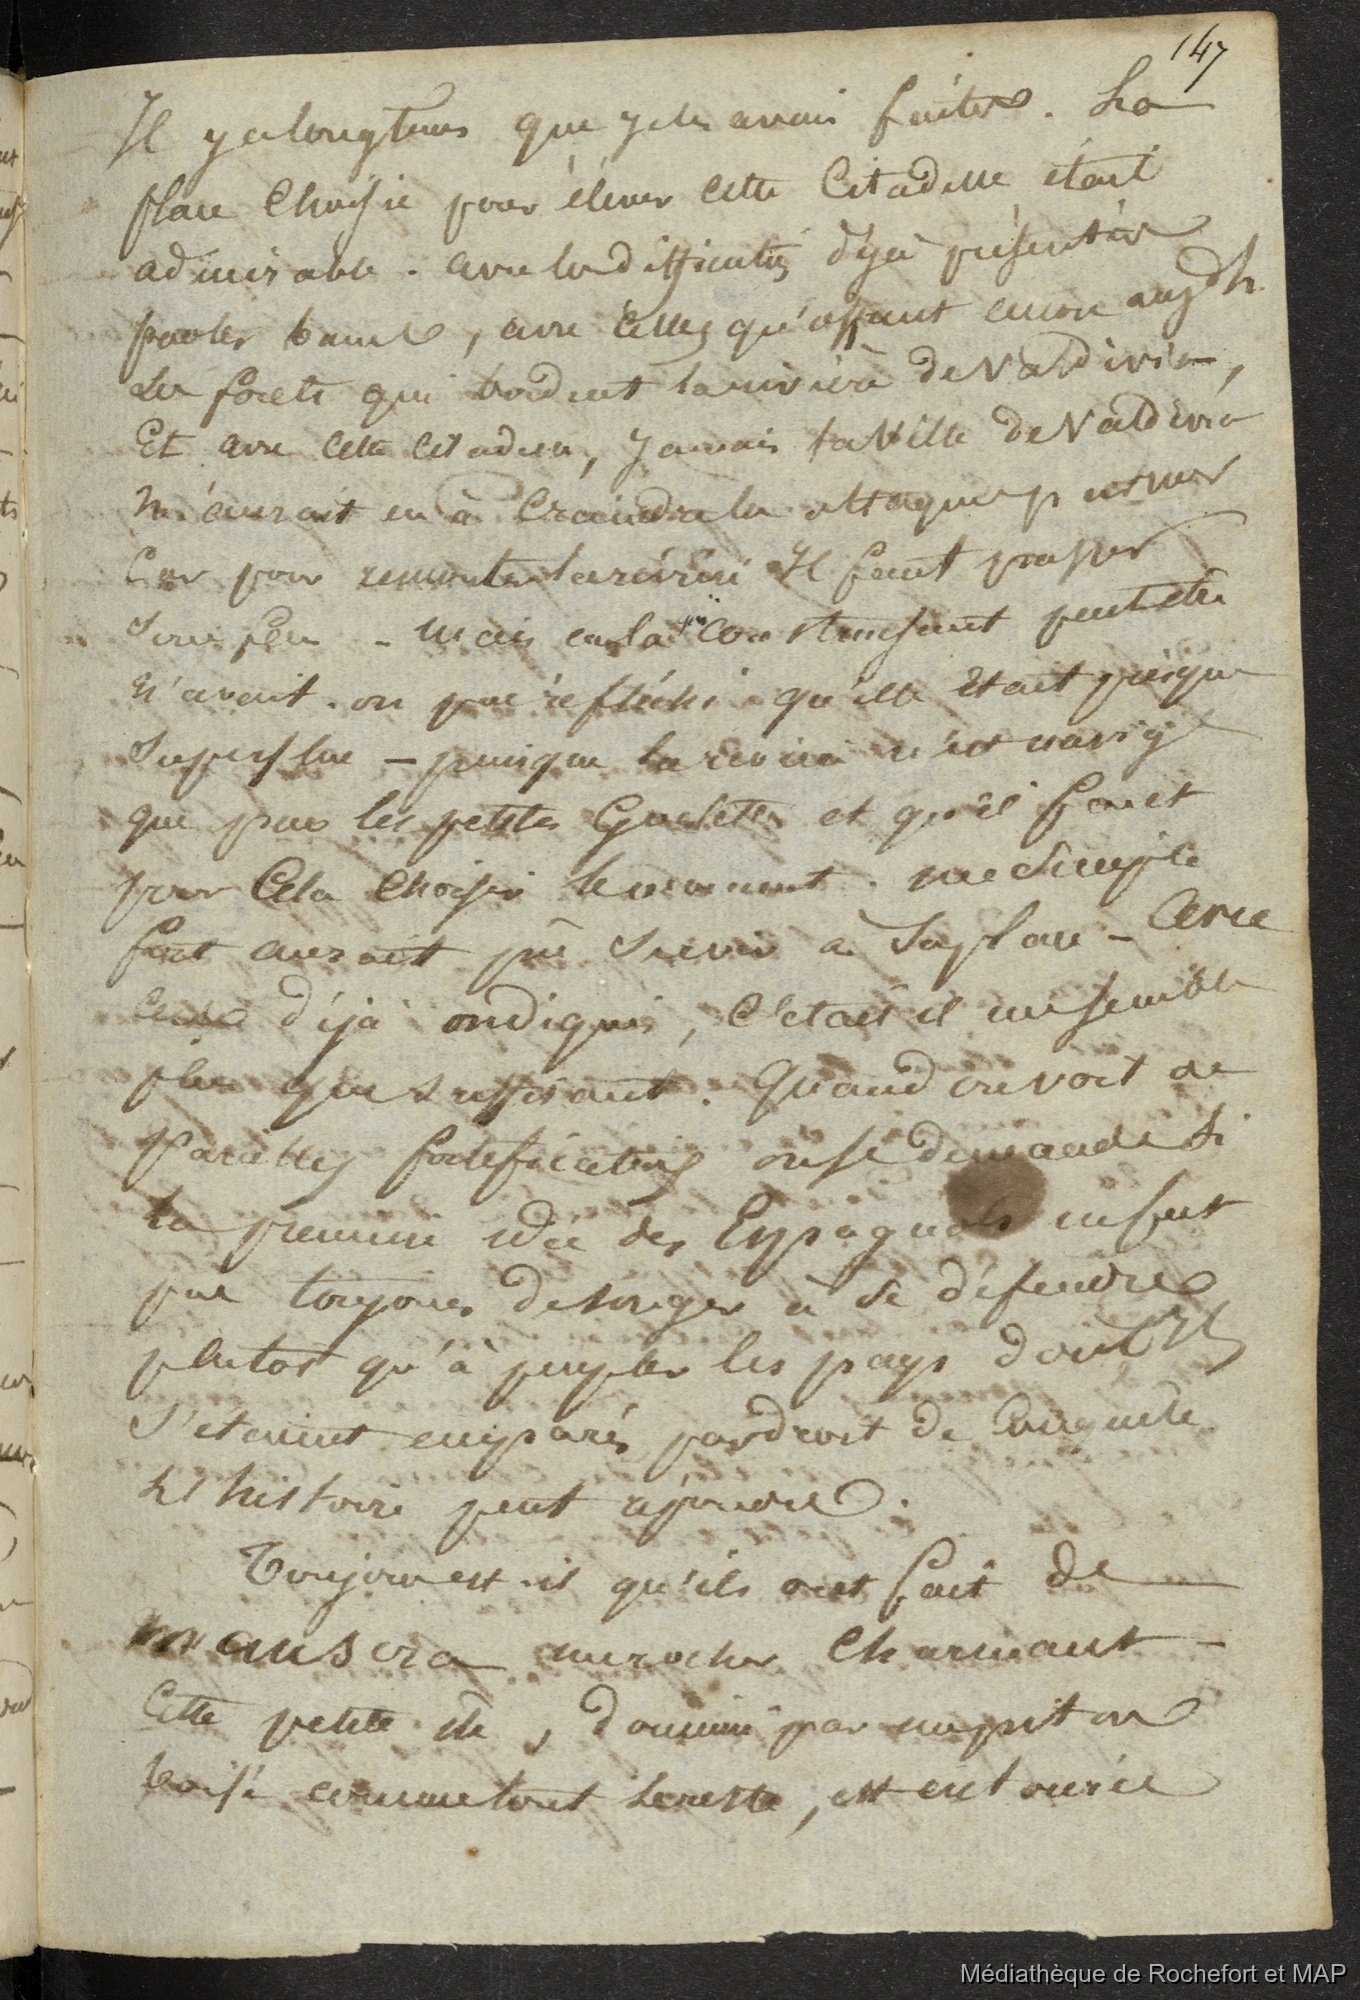 147
Il y a longtems que je les avais faites. La
place choisie pour élever cette citadelle était
admirable. avec les difficultés déja présentées
par les bancs, avec celles qu'offrent encore aujdh.
les forets qui bordent la rivière de Valdivia,
Et avec cette citadelle, jamais la Ville de Valdivia
n'aurait eu à craindre les attaques par mer
Car pour remonter la rivière Il faut passer
sous feu – mais en la construisant peut etre
n'avait-on pas réfléchi qu'elle était presque
superflue – puisque la rivière n'est navigé
que par les petites Goelettes et qu'il faut
pour Cela choisir le moment. une simple
fort aurait pû servir à sa place – avec
ceux déjà indiqués, c'etait il me semble
plus que suffisant. Quand on voit de
pareilles fortifications on se demande si
la première idée des Espagnols ne fut
pas toujours de songer à se défendre
plutot qu'à peupler les pays dont Ils
s'étaient emparés par droit de Conquete
L'histoire peut répondre.
Toujours est-il qu'ils ont fait de
mansera un rocher charmant –
Cette petite ile, dominée par un piton
boisé comme tout le reste, est entourée
Médiathèque de Rochefort et MAP